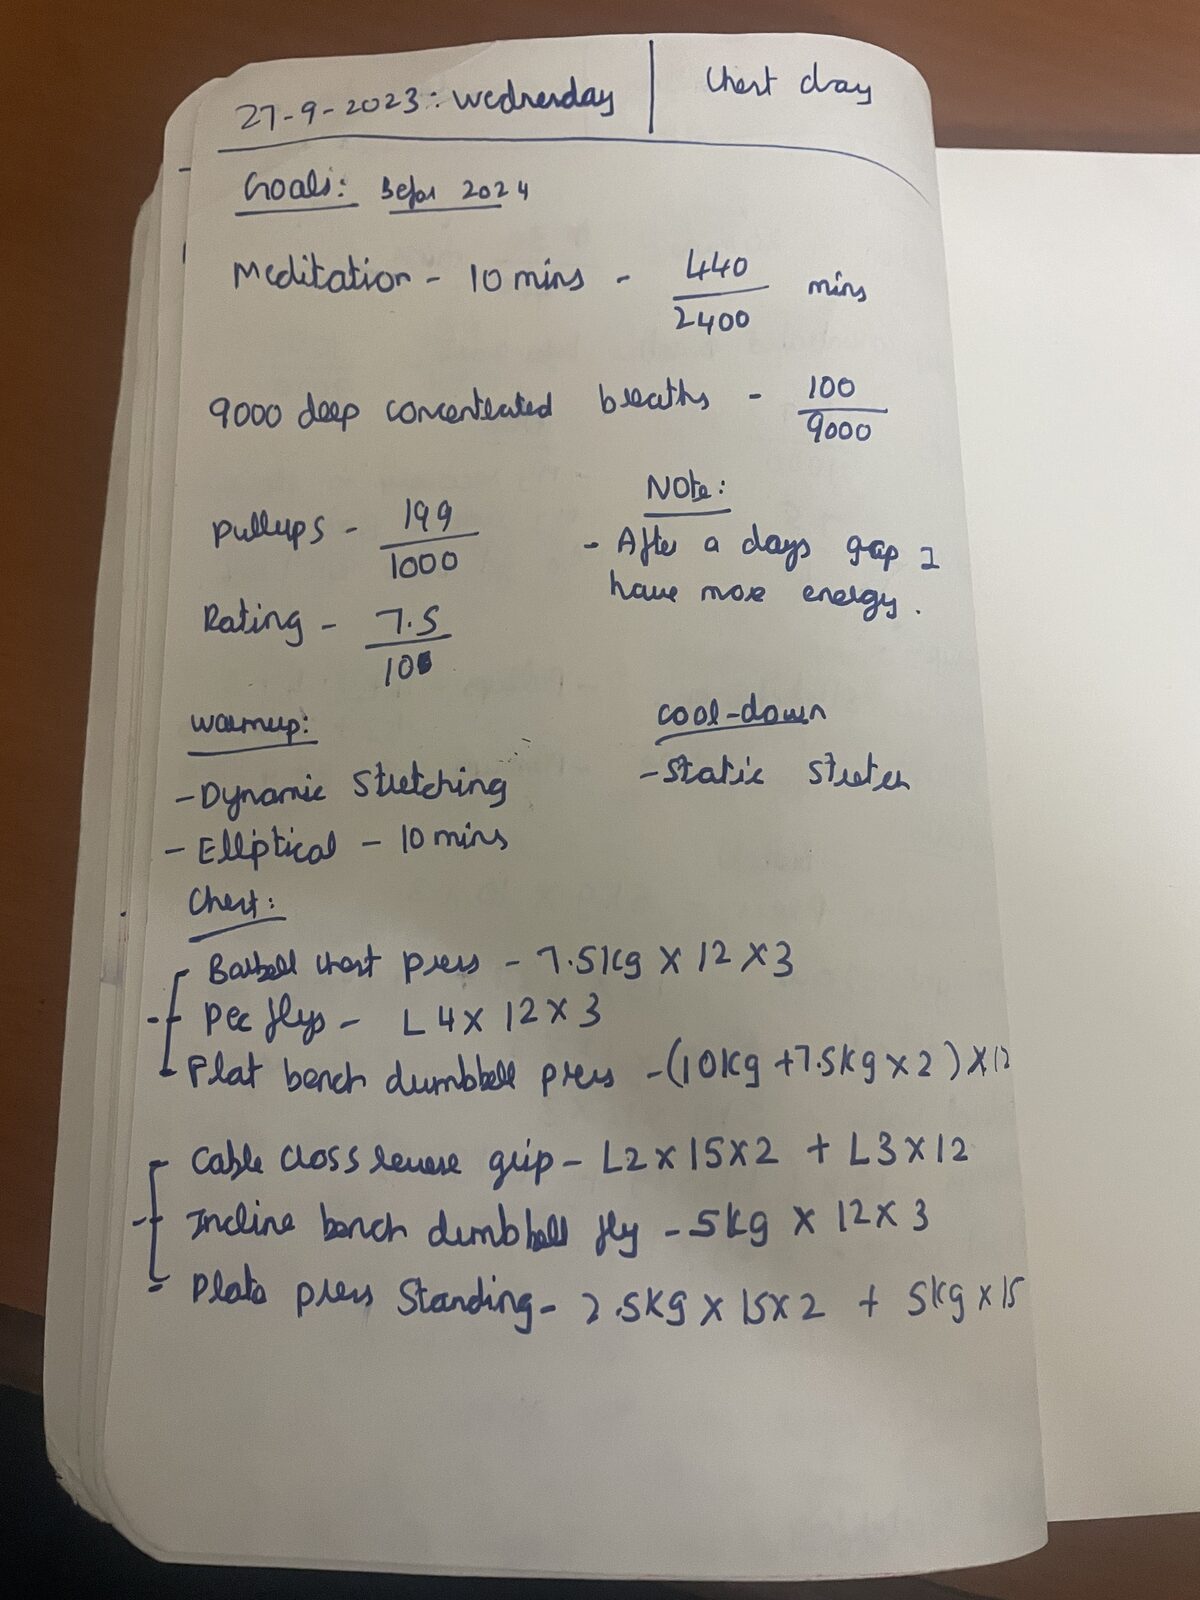 27-9-2023: Wednesday | Chest day
Goals: Before 2024
Meditation - 10 mins - 440/2400 mins
9000 deep concentrated breaths - 100/9000
Pullups - 199/1000
Rating - 7.5/10
Note:
- After a days gap I
have more energy.
Warmup:
- Dynamic Stretching
- Elliptical - 10 mins
Cool-down
- Static Stretch
Chest:
Barbell chest press - 7.5kg x 12 x 3
Pec flys - L4 x 12 x 3
Flat bench dumbbell press - (10kg + 7.5kg x 2) x 12
Cable cross reverse grip - L2 x 15 x 2 + L3 x 12
Incline bench dumbbell fly - 5kg x 12 x 3
Plate press Standing - 2.5kg x 15 x 2 + 5kg x 15